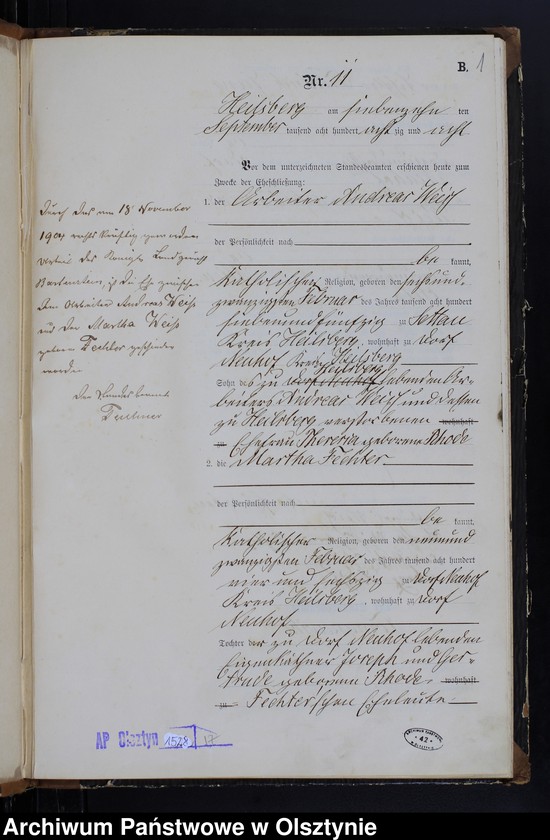 B. 1
Nr. 11
Heilsberg am siebenzehn ten
September tausend acht hundert acht zig und acht
Vor dem unterzeichneten Standesbeamten erschienen heute zum
Zwecke der Eheschließung:
1. der Arbeiter Andreas Weiß
der Persönlichkeit nach
be kannt,
Katholischer Religion, geboren den sechsund-
zwanzigsten Februar des Jahres tausend acht hundert
siebenundfünfzig zu Settau
Kreis Heilsberg, wohnhaft zu Dorf
Neuhof Kreis Heilsberg
Heilsberg
Sohn des zu Dorf Neuhof lebenden Ar-
beiters Andreas Weiß und dessen
zu Heilsberg verstorbenen wohnhaft
zu Ehefrau Theresia geborene Rhode
2. die Martha Fechter
der Persönlichkeit nach
be kannt,
Katholischer Religion, geboren den neunund
zwanzigsten Februar des Jahres tausend acht hundert
vier und sechszig zu Dorf Neuhof
Kreis Heilsberg, wohnhaft zu Dorf
Neuhof
Tochter der zu Dorf Neuhof lebenden
Eigenkäthner Joseph und Ger-
trude geborenen Rhode wohnhaft
zu Fechterschen Eheleute
Durch das am 18 November
1904 rechtskräftig gewordene
Urteil des Königl. Landgerichts
Bartenstein, ist die Ehe zwischen
dem Arbeiter Andreas Weiß
und der Martha Weiß
geborene Fechter geschieden
worden
Der Standesbeamte
AP Olsztyn 1528 17
42
Archiwum Państwowe w Olsztynie